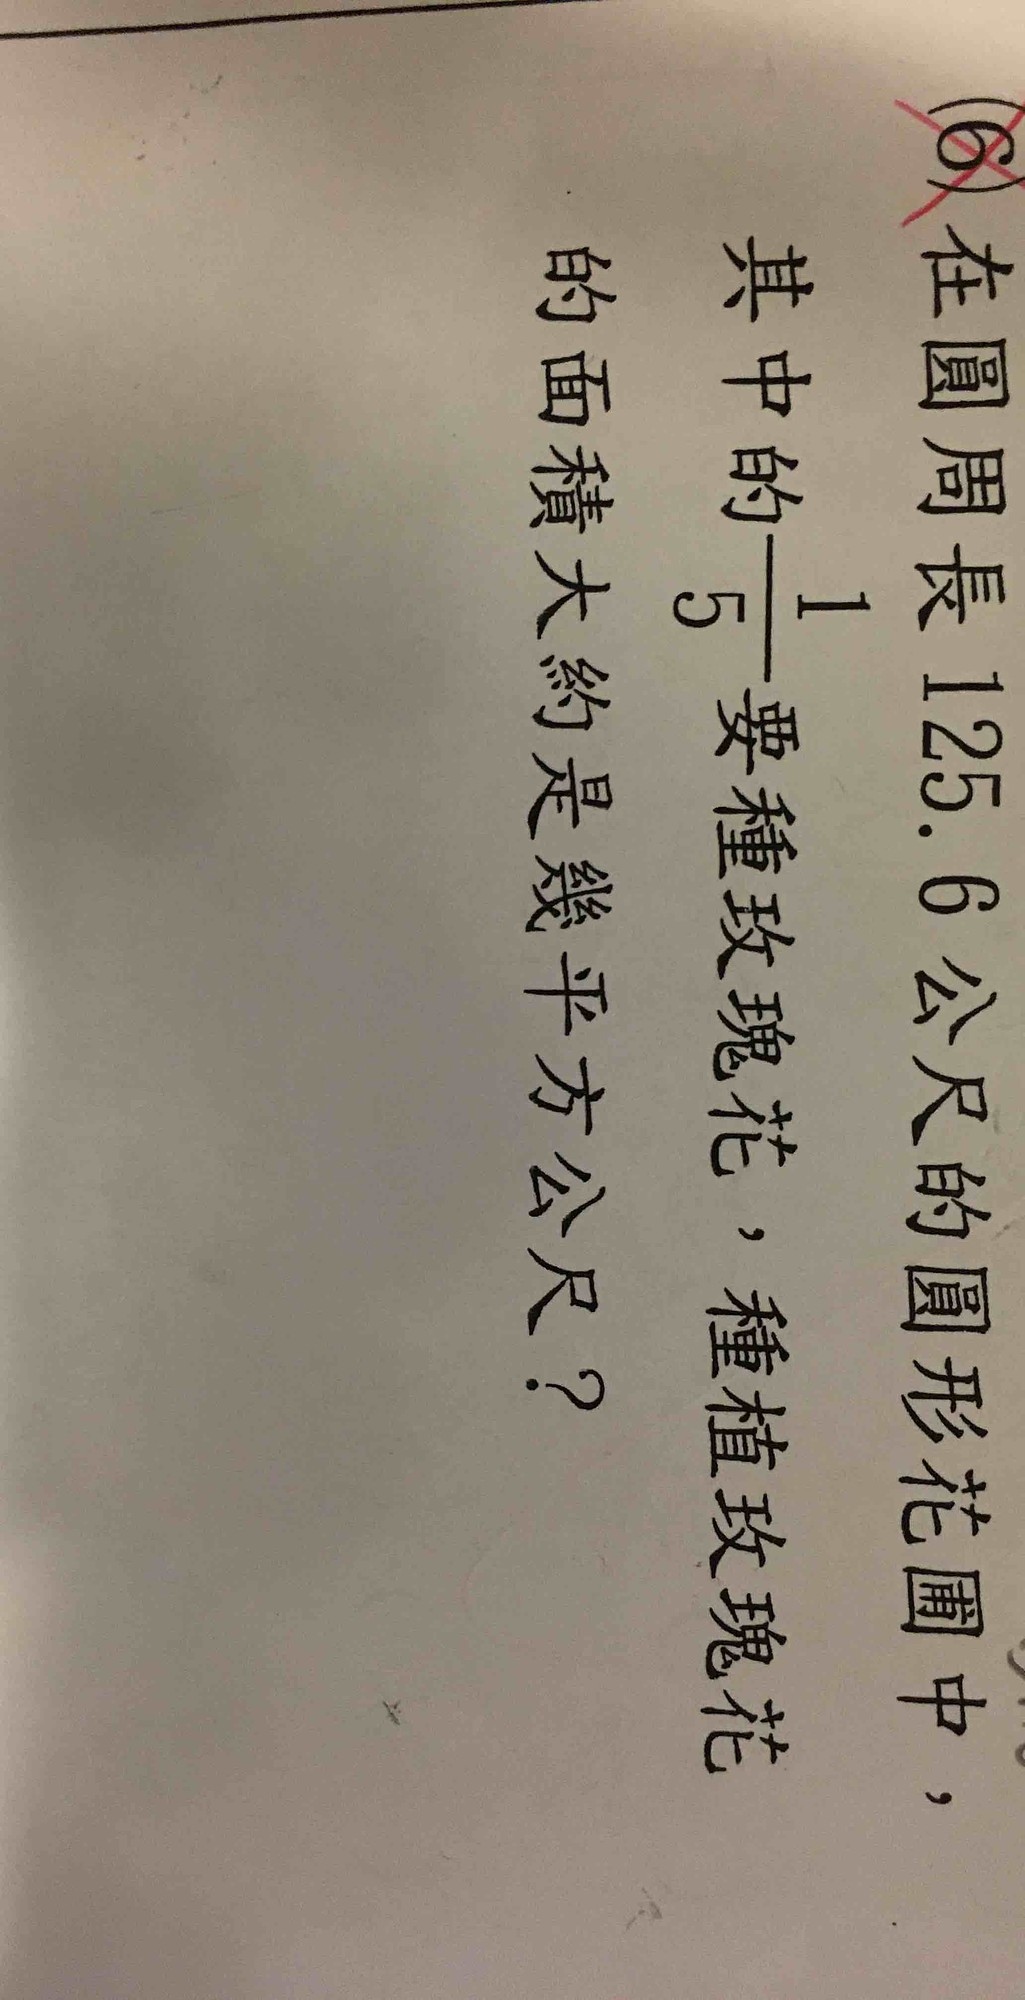 (6)在圓周長125.6公尺的圓形花圃中，
其中的1/5要種玫瑰花，種植玫瑰花
的面積大約是幾平方公尺？